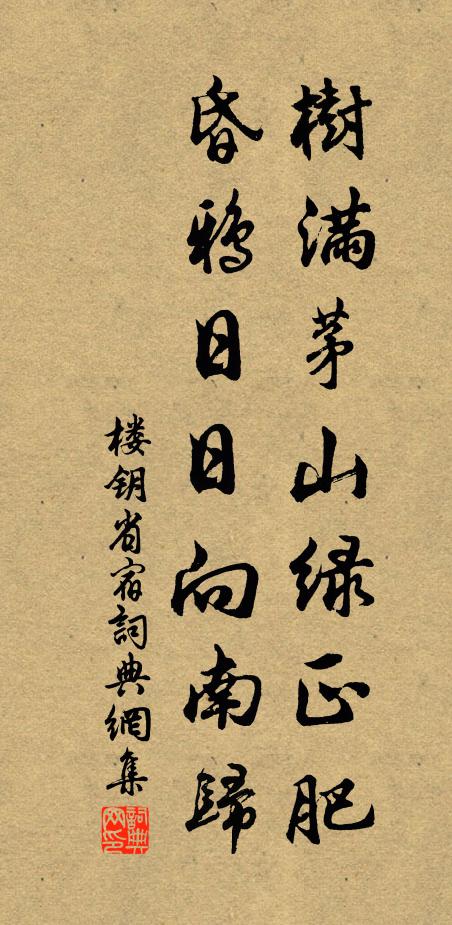 樹滿茅山緑正肥
昏鴉日日向南歸
楼钥省宿詞典網集
詞典网印